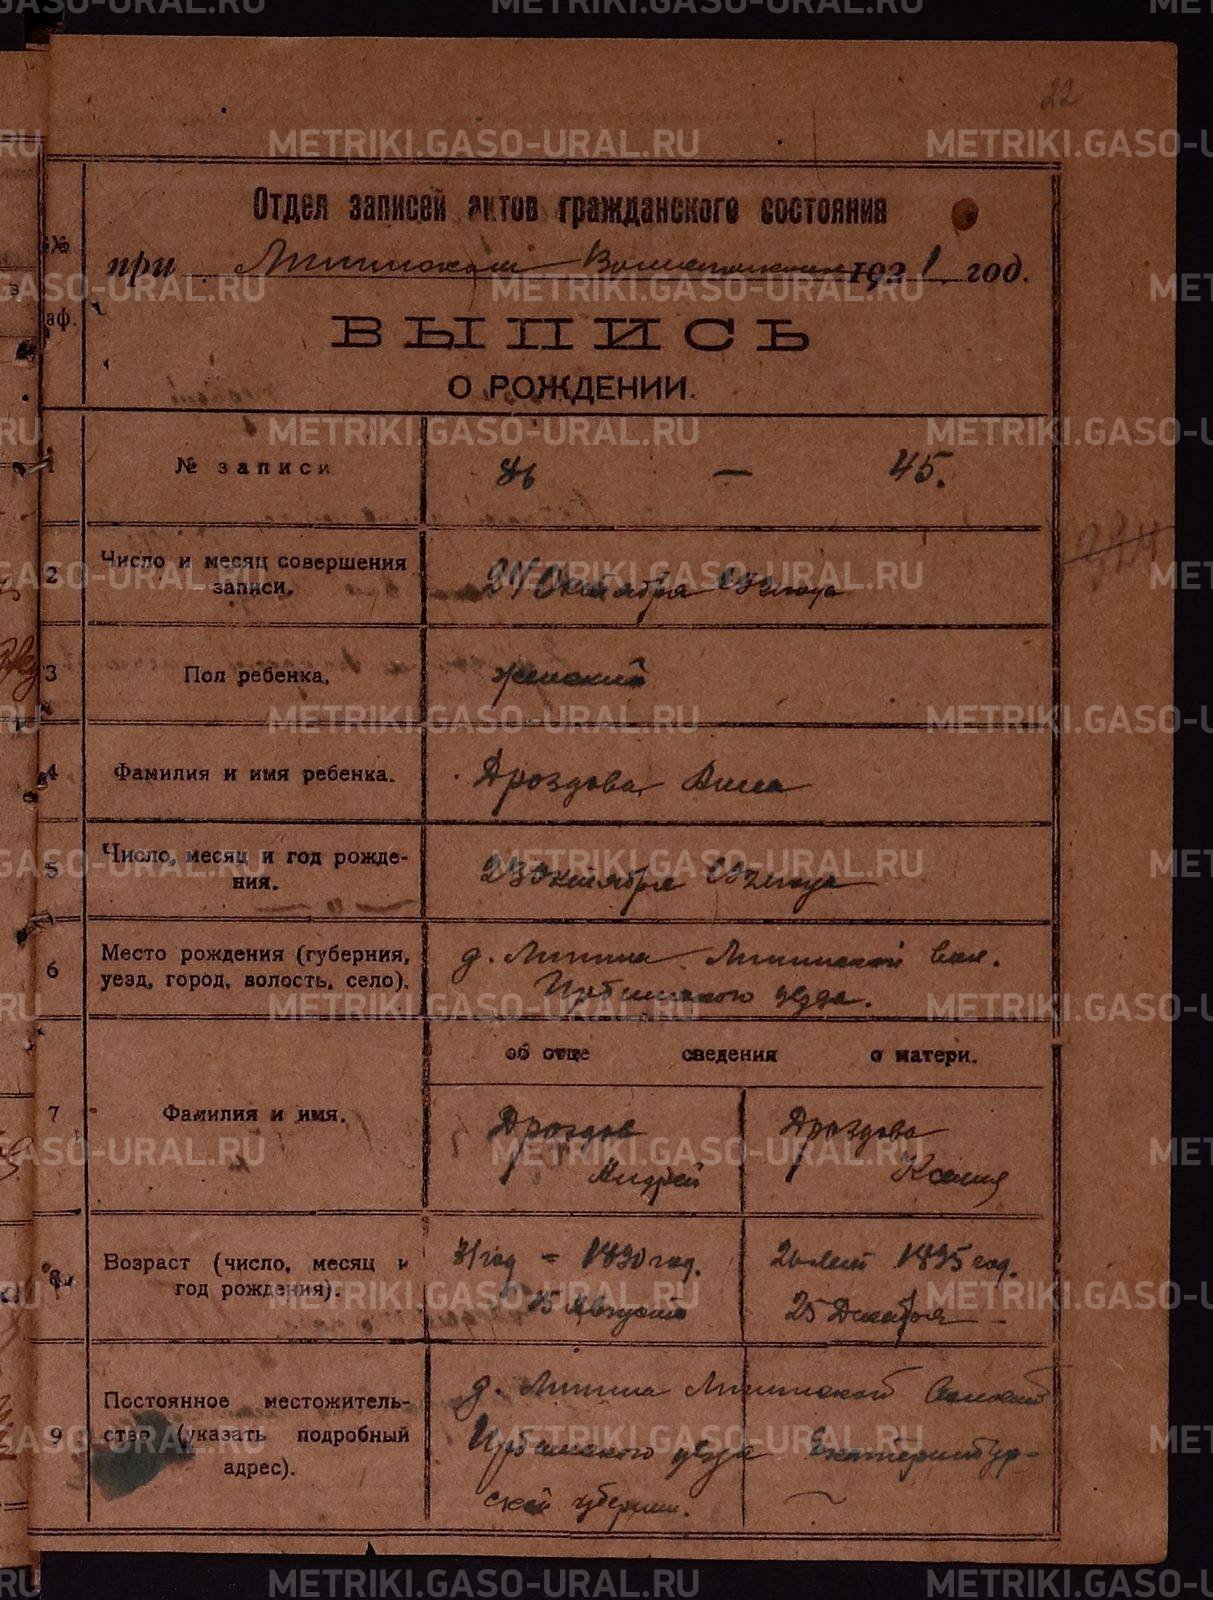 22
Отдел записей актов гражданского состояния
при 1921 год.
№
аф.
ВЫПИСЬ
О РОЖДЕНИИ.
1 № записи — 45.
2 Число и месяц совершения записи. 24 Октября 1921 года
3 Пол ребенка. женский
4 Фамилия и имя ребенка. Дроздова
5 Число, месяц и год рождения. 23 Октября 1921 года
6 Место рождения (губерния, уезд, город, волость, село). д. Липина Липинской вол.
Ирбитского уезда.
об отце сведения о матери.
7 Фамилия и имя. Дроздов Дроздова
Андрей Ксения
8 Возраст (число, месяц и год рождения). 31 год = 1890 год. 26 лет 1895 год.
15 Августа 25 Декабря
9 Постоянное местожительство (указать подробный адрес). д. Липина Липинской
Ирбитского уезда Екатеринбур-
ской губернии.
METRIKI.GASO-URAL.RU